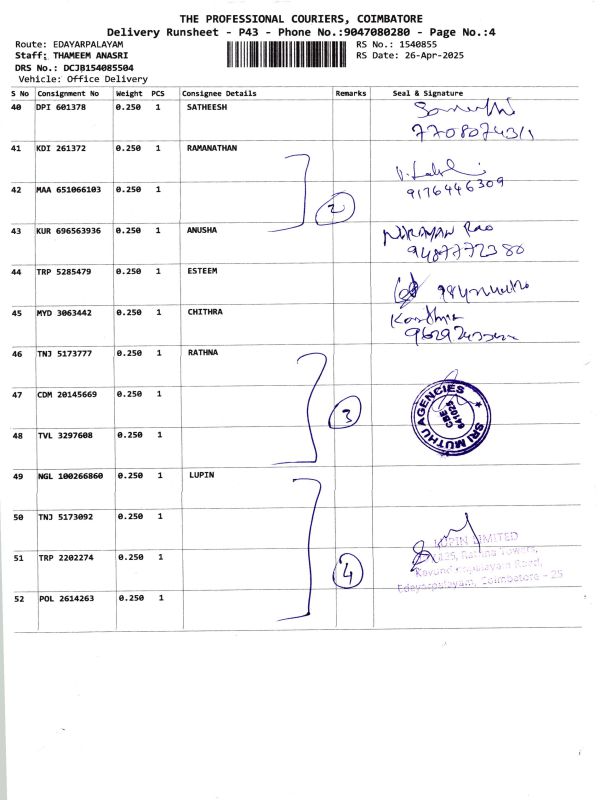 THE PROFESSIONAL COURIERS, COIMBATORE
Delivery Runsheet - P43 - Phone No.:9047080280 - Page No.:4
Route: EDAYARPALAYAM
RS No.: 1540855
Staff: THAMEEM ANASRI
RS Date: 26-Apr-2025
DRS No.: DCJB154085504
Vehicle: Office Delivery
S No Consignment No Weight PCS Consignee Details Remarks Seal & Signature
40 DPI 601378 0.250 1 SATHEESH
41 KDI 261372 0.250 1 RAMANATHAN
42 MAA 651066103 0.250 1
9176446309
2
43 KUR 696563936 0.250 1 ANUSHA
9487772380
44 TRP 5285479 0.250 1 ESTEEM
45 MYD 3063442 0.250 1 CHITHRA
46 TNJ 5173777 0.250 1 RATHNA
47 CDM 20145669 0.250 1
3
SRI MUTHU AGENCIES
CBE
641025
48 TVL 3297608 0.250 1
49 NGL 100266860 0.250 1 LUPIN
50 TNJ 5173092 0.250 1
LUPIN LIMITED
51 TRP 2202274 0.250 1
4
Edayarpalayam, Coimbatore - 25
52 POL 2614263 0.250 1